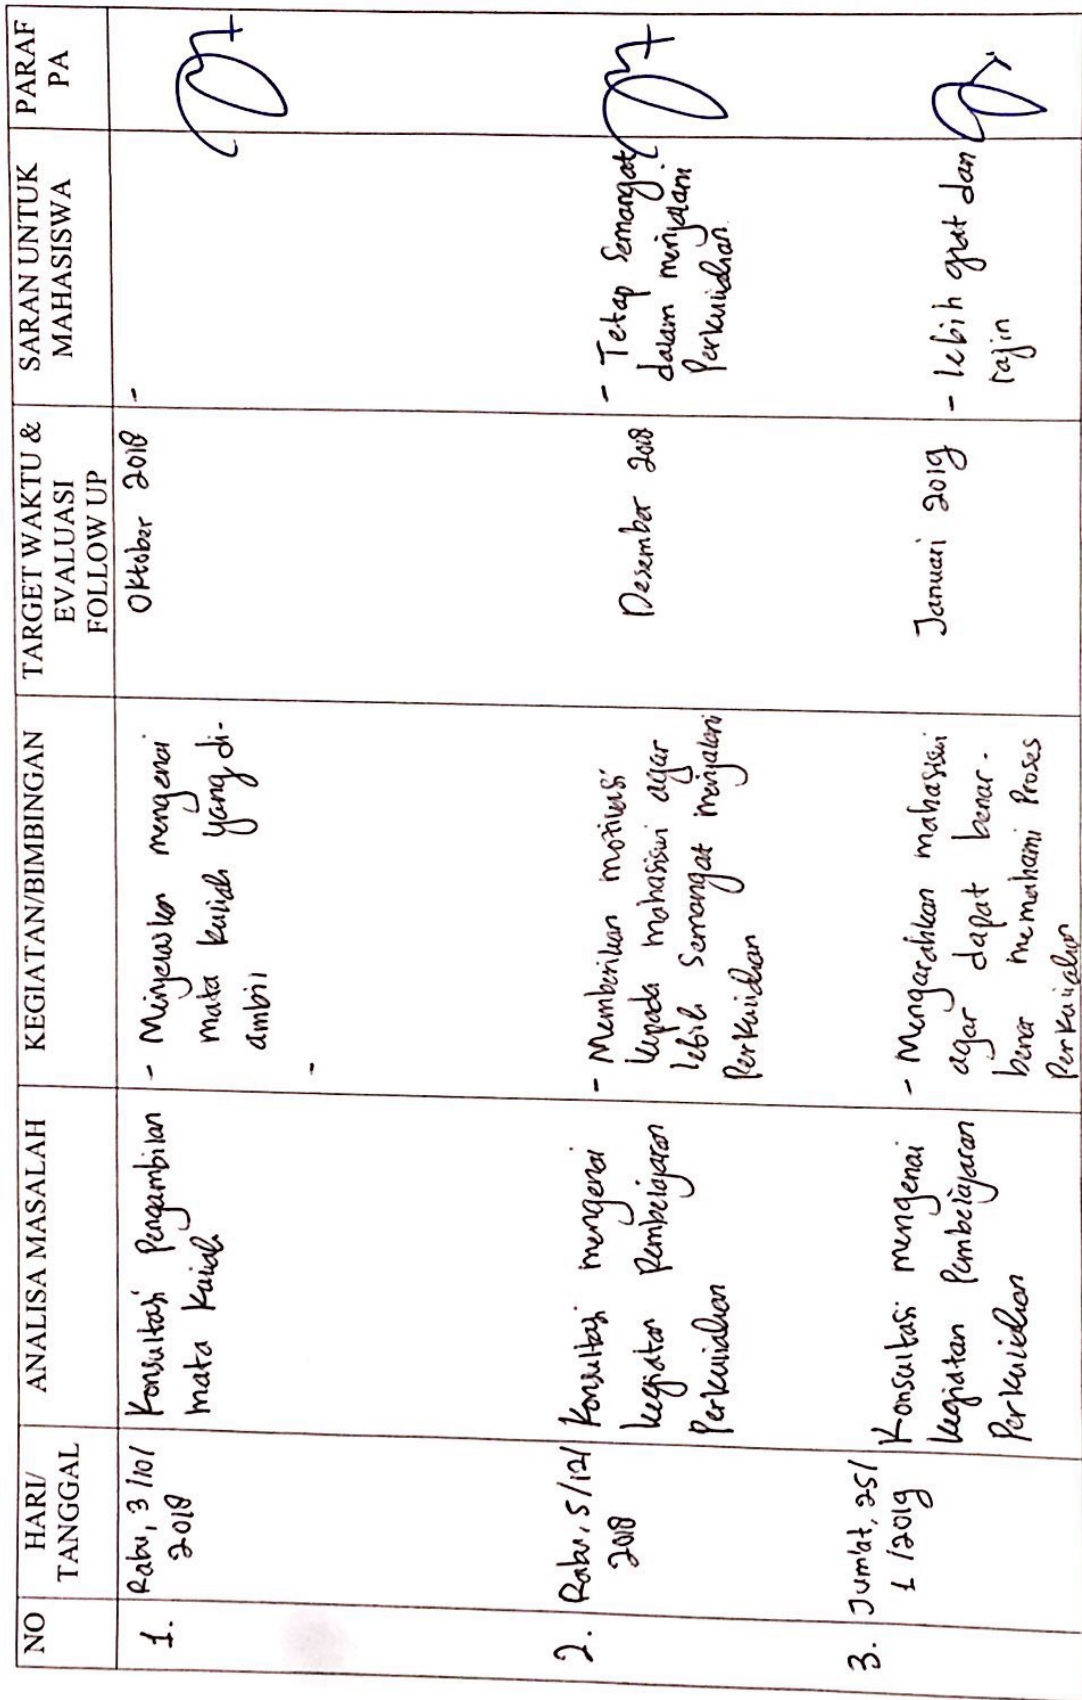 NO
HARI/
TANGGAL
ANALISA MASALAH
KEGIATAN/BIMBINGAN
TARGET WAKTU &
EVALUASI
FOLLOW UP
SARAN UNTUK
MAHASISWA
PARAF
PA
1.
Rabu, 3/10/
2018
Konsultasi Pengambilan
mata kuliah
- Menjelaskan mengenai
mata kuliah yang di-
ambil
-
Oktober 2018
-
2.
Rabu, 5/12/
2018
Konsultasi mengenai
kegiatan Pembelajaran
Perkuliahan
- Memberikan motivasi
kepada mahasiswi agar
lebih semangat menjalani
Perkuliahan
Desember 2018
- Tetap Semangat
dalam menjalani
Perkuliahan.
3.
Jum'at, 25/
1/2019
Konsultasi mengenai
kegiatan Pembelajaran
Perkuliahan
- Mengarahkan mahasiswi
agar dapat benar-
benar memahami Proses
Perkuliahan
Januari 2019
- lebih giat dan
rajin